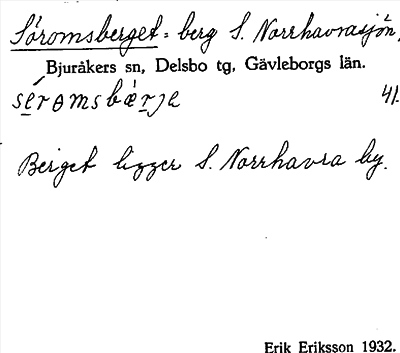 Söromsberget = berg S. Norrhavrasjön,
Bjuråkers sn, Delsbo tg, Gävleborgs län.
41.
Berget ligger S. Norrhavra by.
Erik Eriksson 1932.